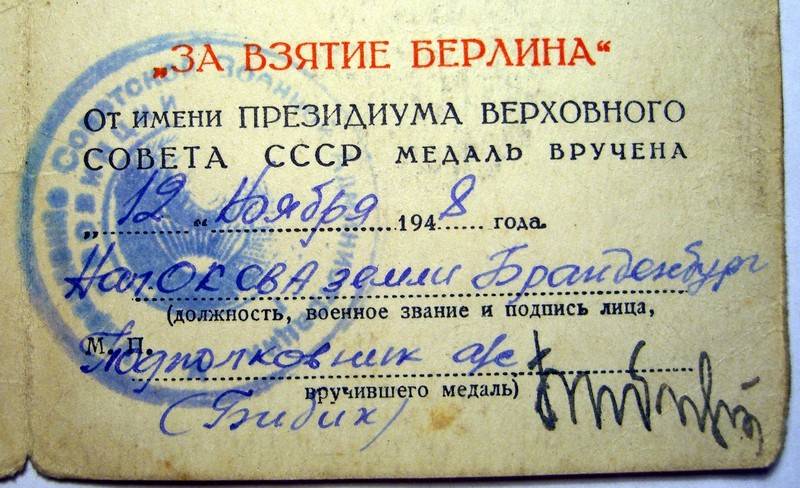 „ЗА ВЗЯТИЕ БЕРЛИНА“
От имени ПРЕЗИДИУМА ВЕРХОВНОГО
СОВЕТА СССР МЕДАЛЬ ВРУЧЕНА
„ 12 “ Ноября 1948 года.
Нач ОКСВА земли Бранденбург
(должность, военное звание и подпись лица,
М. П. Подполковник
вручившего медаль)
(Бибик)